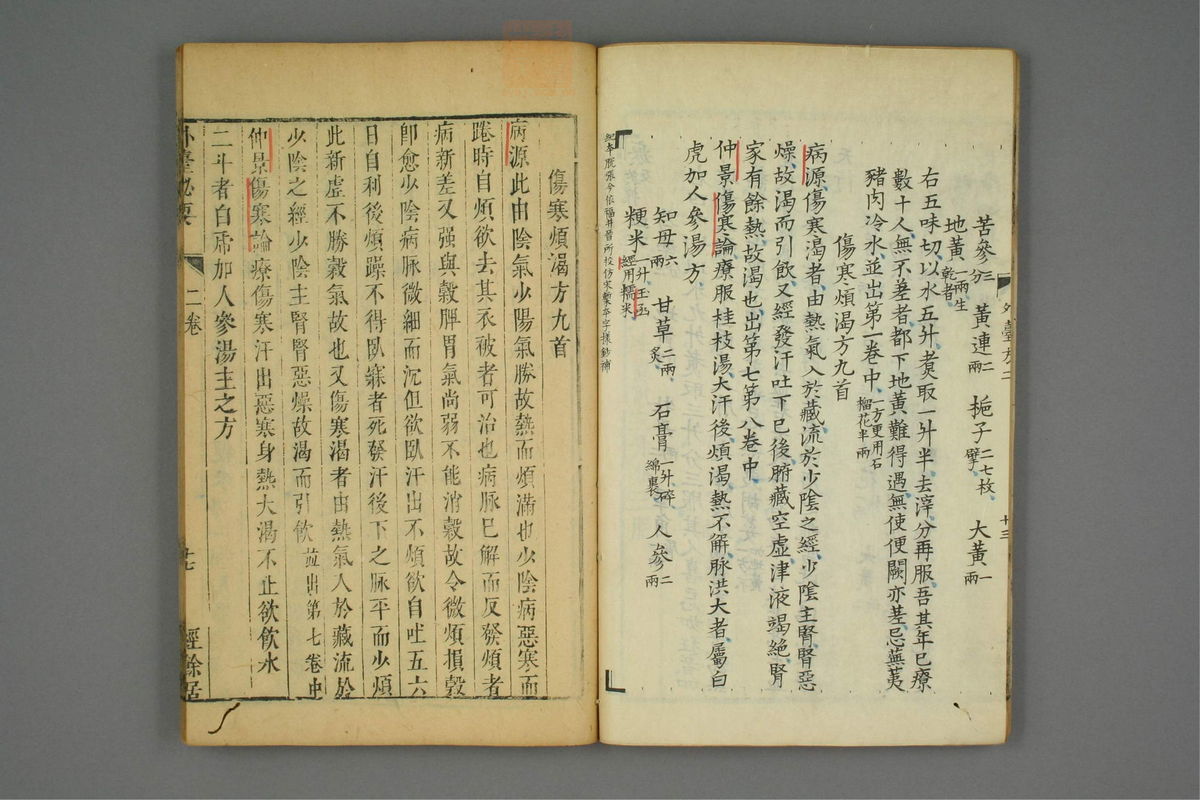 外臺方二
十三
苦參三分 黃連二兩 梔子二七枚擘 大黃一兩
地黃一兩生乾者
右五味切以水五升煑取一升半去滓分再服吾其年已療
數十人無不差者都下地黃難得遇無使便闕亦差忌蕪荑
豬肉冷水並出第一卷中一方更用石榴花半兩
傷寒煩渴方九首
病源傷寒渴者由熱氣入於藏流於少陰之經少陰主腎腎惡
燥故渴而引飲又經發汗吐下已後腑藏空虛津液竭絕腎
家有餘熱故渴也出第七第八卷中
仲景傷寒論療服桂枝湯大汗後煩渴熱不解脉洪大者屬白
虎加人參湯方
知母六兩 甘草二兩炙 石膏一升碎綿裹 人參二兩
粳米一升玉函經用糯米
紀本脫張今依福井晉所校仿宋槧本字様鈔補
傷寒煩渴方九首
病源此由陰氣少陽氣勝故熱而煩滿也少陰病惡寒而
踡時自煩欲去其衣被者可治也病脉已解而反發煩者
病新差又强與穀脾胃氣尚弱不能消穀故令微煩損穀
卽愈少陰病脉微細而沉但欲臥汗出不煩欲自吐五六
日自利後煩躁不得臥寐者死發汗後下之脉平而少煩
此新虛不勝穀氣故也又傷寒渴者由熱氣入於藏流於
少陰之經少陰主腎腎惡燥故渴而引飲並出第七卷中
仲景傷寒論療傷寒汗出惡寒身熱大渴不止欲飲水
一二斗者白虎加人參湯主之方
外臺秘要
二卷
十七
經餘居